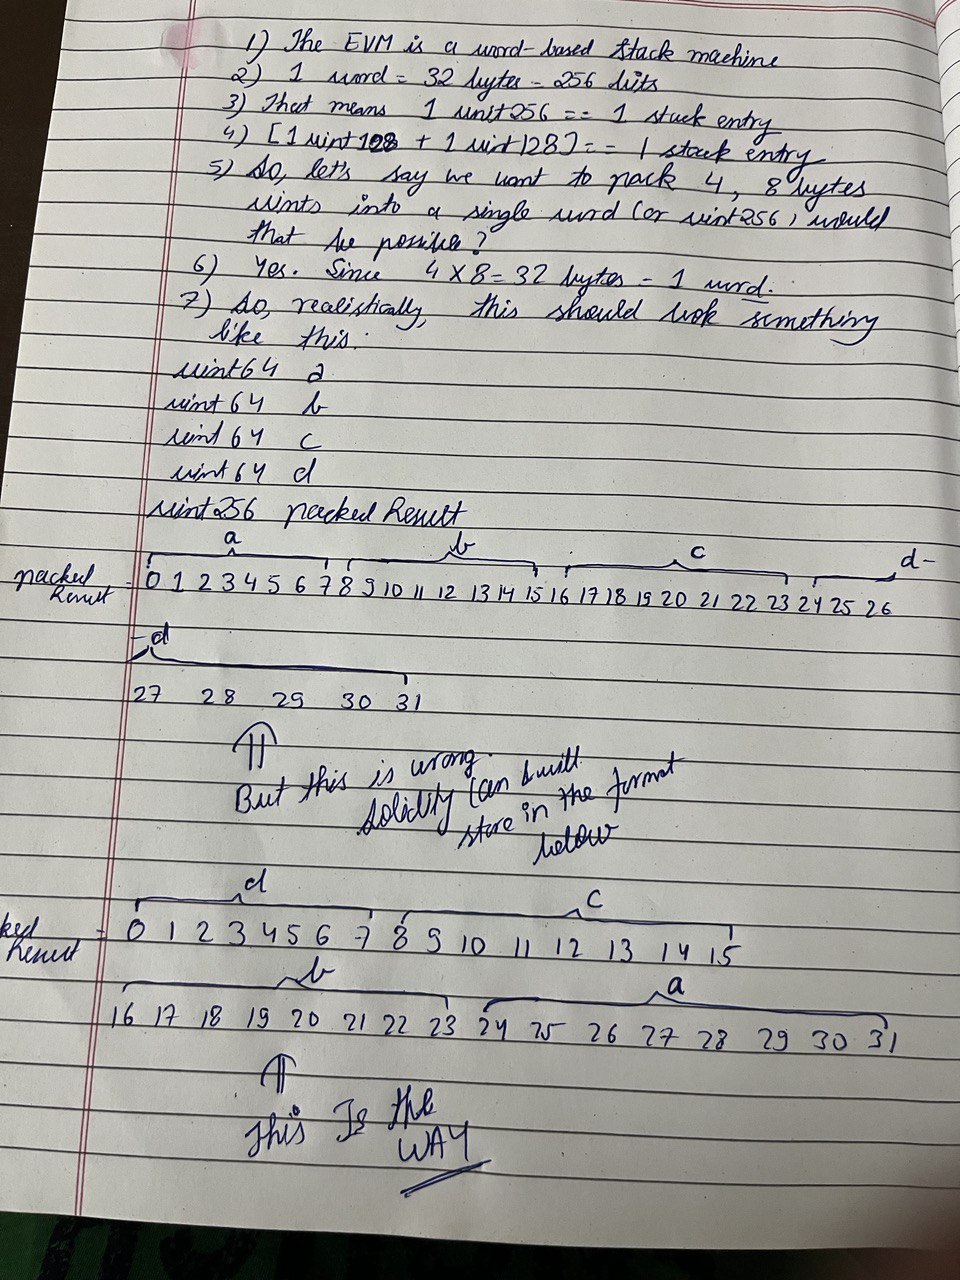 1) The EVM is a word-based stack machine
2) 1 word = 32 bytes = 256 bits
3) That means 1 unit256 == 1 stack entry
4) [1 uint128 + 1 uint128] == 1 stack entry
5) So, let's say we want to pack 4, 8 bytes
uints into a single word (or uint256) would
that be possible?
6) Yes. Since 4 X 8 = 32 bytes = 1 word.
7) So, realistically, this should look something
like this:
uint64 a
uint64 b
uint64 c
uint64 d
uint256 packed Result
a b c d-
packed Result = 0 1 2 3 4 5 6 7 8 9 10 11 12 13 14 15 16 17 18 19 20 21 22 23 24 25 26
-d
27 28 29 30 31
But this is wrong.
Solidity can & will
store in the format
below
d c
ked Result = 0 1 2 3 4 5 6 7 8 9 10 11 12 13 14 15
b a
16 17 18 19 20 21 22 23 24 25 26 27 28 29 30 31
This Is the
WAY